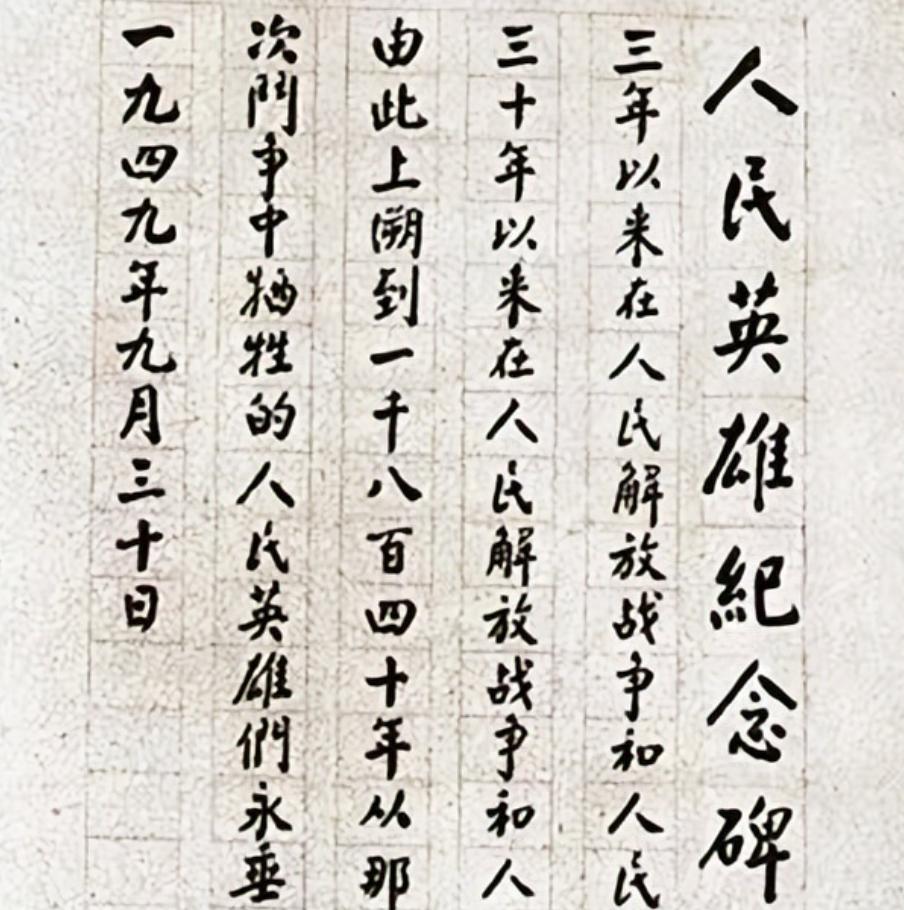 人民英雄紀念碑
三年以来在人民解放战争和人民
三十年以来在人民解放战争和人
由此上溯到一千八百四十年从那
次鬥争中牺牲的人民英雄們永垂
一九四九年九月三十日